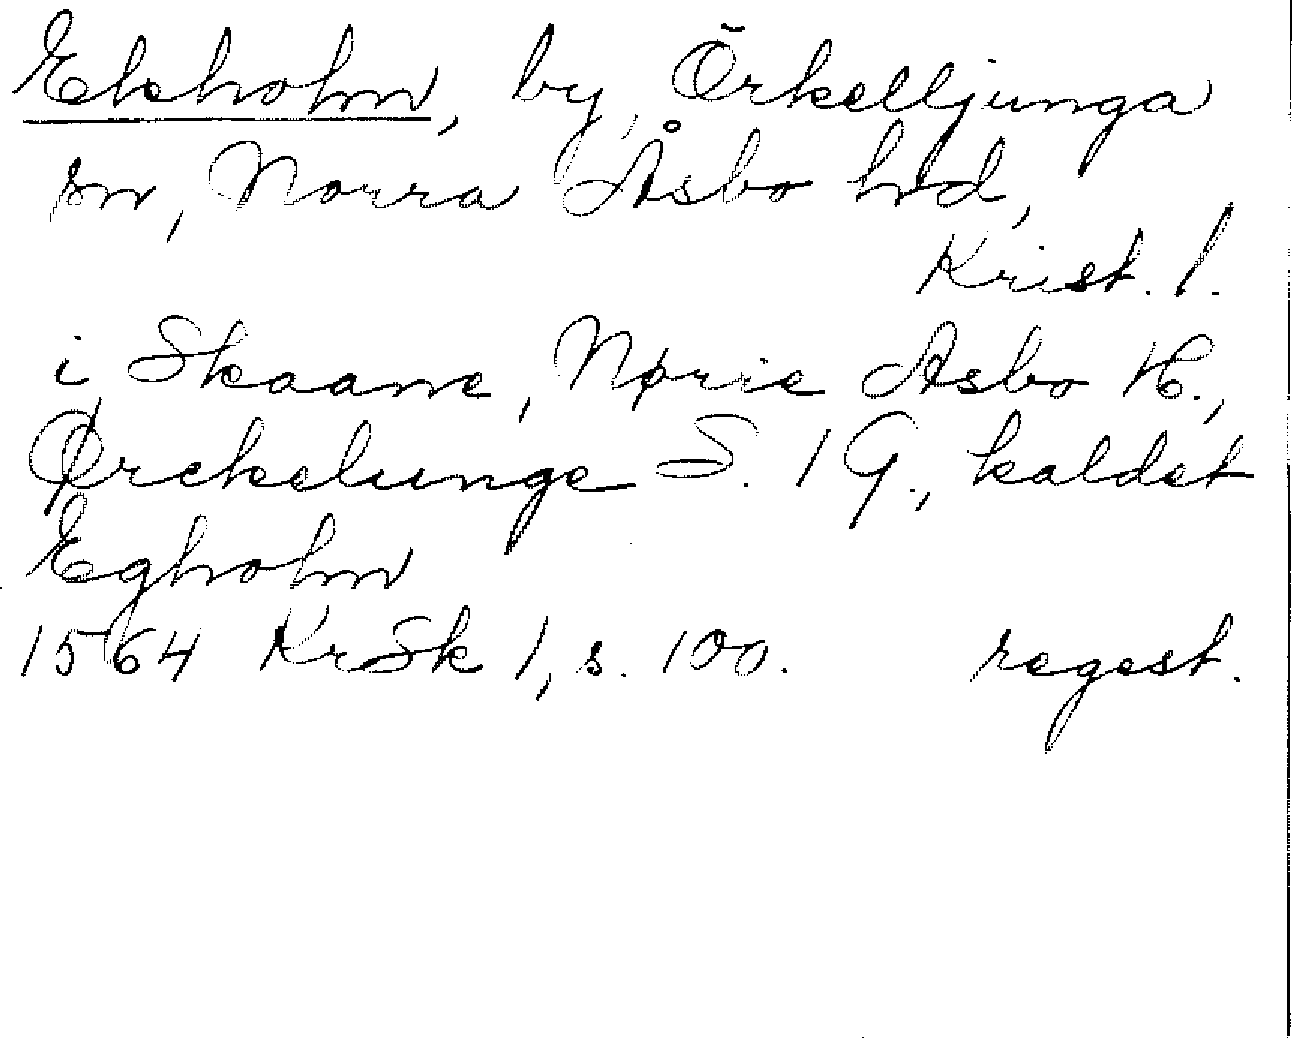 Ekeholm, by, Örkelljunga
sn, Norra Åsbo hd,
Krist. l.
i Skaane, Nørie Asbo H.,
Ørckelunge S. 1 G., kaldet
Egholm
1564 KrSk 1, s. 100. regest.